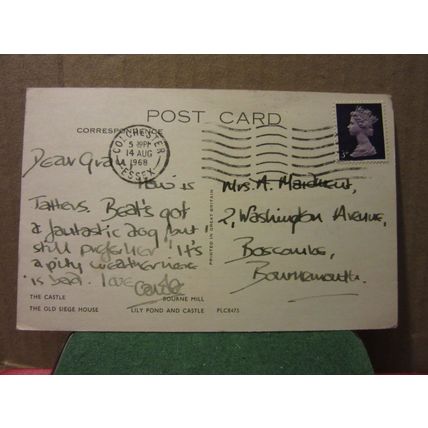 POST CARD
CORRESPONDENCE
COLCHESTER
5 - PM
14 AUG
1968
ESSEX
Dear Gran,
How is
Tatters. Beat's got
a fantastic dog but I
still prefer her. It's
a pity weather here
is bad. love
Mrs. A. Maidment,
2, Washington Avenue,
Boscombe,
Bournemouth.
PRINTED IN GREAT BRITAIN
THE CASTLE
BOURNE MILL
THE OLD SIEGE HOUSE
LILY POND AND CASTLE
PLC8475